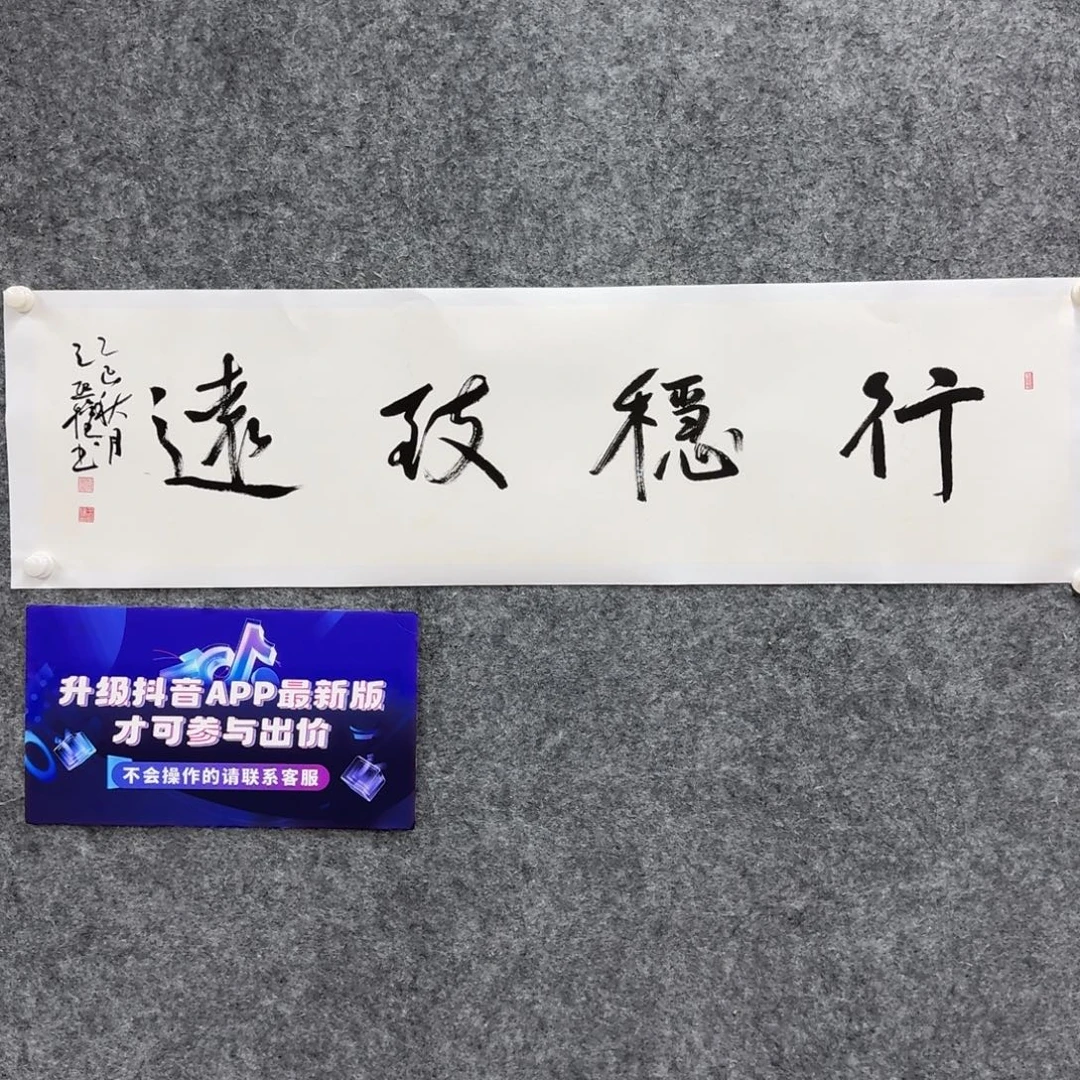 行穩致遠
乙巳秋月
升级抖音APP最新版
才可参与出价
不会操作的请联系客服